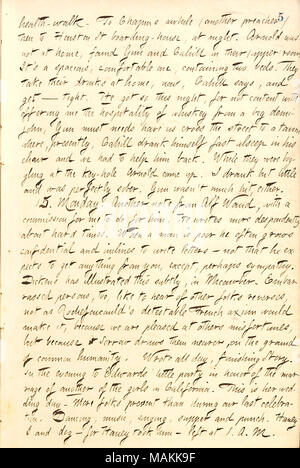 5
health-walk. To Chapin's awhile (another preacher)
then to Houston St boarding-house, at night. Arnold was
not at home, found Gun and Cahill in their upper room
It's a spacious, comfortable one, containing two beds. They
take their drinks at home, now, Cahill says, and
get — tight. He got so this night, for not content with
offering me the hospitality of whiskey from a big demi-
john, Gun must needs have us cross the street to a tavern
where, presently, Cahill drank himself fast asleep in his
chair and we had to help him back. While they were
at the key-hole Arnold came up. I drank but little
and was perfectly sober. Gun wasn't much hit either.
15. Monday. Another note from Alf Waud, with a
commission for me to do for him. He writes more despondently
about hard times. When a man is poor he often grows
confidential and inclines to write letters — not that he ex-
pects to get anything from you, except, perhaps sympathy.
Dickens has illustrated this subtly, in Micawber. Embar-
rassed persons, too, like to hear of other folks reverses,
not as Rochefoucauld's detestable French axiom would
make it, because we are pleased at others misfortunes,
but because Sorrow draws them nearer, on the ground
of common humanity. Wrote all day, finishing Story.
In the evening to Edwards' little party in honor of the mar-
riage of another of the girls in California. This is her wed-
ding day. More folks present than during our last celebra-
tion. Dancing, music, singing, supper and punch. Haney
I and dog — for Haney took him — left at 1. A. M.
alamy
Image ID: MAKK9F
www.alamy.com